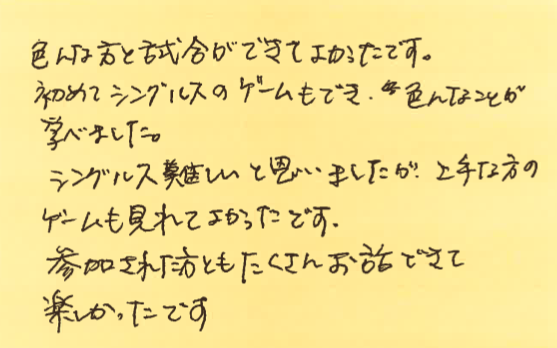 色んな方と試合ができてよかったです。
初めてシングルスのゲームもでき、色んなことが
学べました。
シングルス難しいと思いましたが、上手な方の
ゲームも見れてよかったです。
参加された方ともたくさんお話できて
楽しかったです